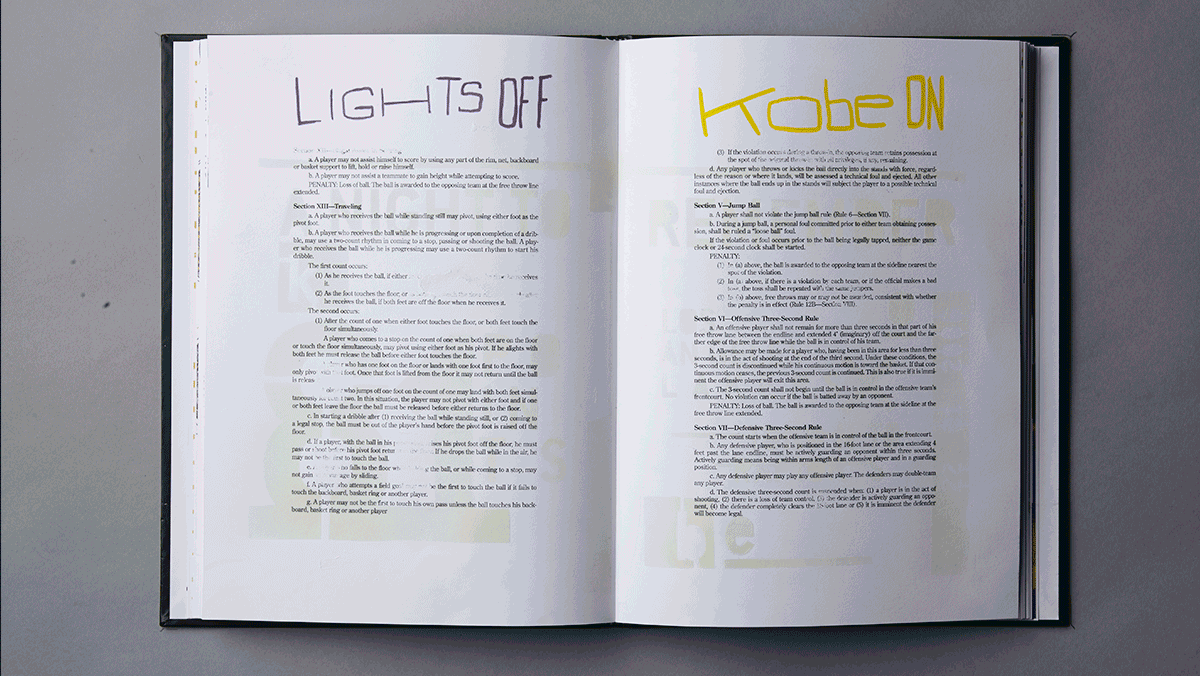 LIGHTS OFF
a. A player may not assist himself to score by using any part of the rim, net, backboard
or basket support to lift, hold or raise himself.
b. A player may not assist a teammate to gain height while attempting to score.
PENALTY: Loss of ball. The ball is awarded to the opposing team at the free throw line
extended.
Section XIII—Traveling
a. A player who receives the ball while standing still may pivot, using either foot as the
pivot foot.
b. A player who receives the ball while he is progressing or upon completion of a drib-
ble, may use a two-count rhythm in coming to a stop, passing or shooting the ball. A play-
er who receives the ball while he is progressing may use a two-count rhythm to start his
dribble.
The first count occurs:
(1) As he receives the ball, if either receives
it.
(2) As the foot touches the floor, or
he receives the ball, if both feet are off the floor when he receives it.
The second occurs:
(1) After the count of one when either foot touches the floor, or both feet touch the
floor simultaneously.
A player who comes to a stop on the count of one when both feet are on the floor
or touch the floor simultaneously, may pivot using either foot as his pivot. If he alights with
both feet he must release the ball before either foot touches the floor.
who has one foot on the floor or lands with one foot first to the floor, may
only foot. Once that foot is lifted from the floor it may not return until the ball
is
who jumps off one foot on the count of one may land with both feet simul-
taneously two. In this situation, the player may not pivot with either foot and if one
or both feet leave the floor the ball must be released before either returns to the floor.
c. In starting a dribble after (1) receiving the ball while standing still, or (2) coming to
a legal stop, the ball must be out of the player's hand before the pivot foot is raised off the
floor.
d. If a player, with the ball in his his pivot foot off the floor, he must
pass or shoot before his pivot foot If he drops the ball while in the air, he
may not be the first to touch the ball.
falls to the floor the ball, or while coming to a stop, may
not gain by sliding.
f. A player who attempts a field be the first to touch the ball if it fails to
touch the backboard, basket ring or another player.
g. A player may not be the first to touch his own pass unless the ball touches his back-
board, basket ring or another player
Kobe ON
(3) If the violation occurs during a throw-in, the opposing team retains possession at
the spot of the original throw-in with all privileges, if any, remaining.
d. Any player who throws or kicks the ball directly into the stands with force, regard-
less of the reason or where it lands, will be assessed a technical foul and ejected. All other
instances where the ball ends up in the stands will subject the player to a possible technical
foul and ejection.
Section V—Jump Ball
a. A player shall not violate the jump ball rule (Rule 6—Section VII).
b. During a jump ball, a personal foul committed prior to either team obtaining posses-
sion, shall be ruled a "loose ball" foul.
If the violation or foul occurs prior to the ball being legally tapped, neither the game
clock or 24-second clock shall be started.
PENALTY:
(1) In (a) above, the ball is awarded to the opposing team at the sideline nearest the
spot of the violation.
(2) In (a) above, if there is a violation by each team, or if the official makes a bad
toss, the toss shall be repeated with the same jumpers.
(3) In (b) above, free throws may or may not be awarded, consistent with whether
the penalty is in effect (Rule 12B—Section VIII).
Section VI—Offensive Three-Second Rule
a. An offensive player shall not remain for more than three seconds in that part of his
free throw lane between the endline and extended 4' (imaginary) off the court and the far-
ther edge of the free throw line while the ball is in control of his team.
b. Allowance may be made for a player who, having been in this area for less than three
seconds, is in the act of shooting at the end of the third second. Under these conditions, the
3-second count is discontinued while his continuous motion is toward the basket. If that con-
tinuous motion ceases, the previous 3-second count is continued. This is also true if it is immi-
nent the offensive player will exit this area.
c. The 3-second count shall not begin until the ball is in control in the offensive team's
frontcourt. No violation can occur if the ball is batted away by an opponent.
PENALTY: Loss of ball. The ball is awarded to the opposing team at the sideline at the
free throw line extended.
Section VII—Defensive Three-Second Rule
a. The count starts when the offensive team is in control of the ball in the frontcourt.
b. Any defensive player, who is positioned in the 16-foot lane or the area extending 4
feet past the lane endline, must be actively guarding an opponent within three seconds.
Actively guarding means being within arms length of an offensive player and in a guarding
position.
c. Any defensive player may play any offensive player. The defenders may double-team
any player.
d. The defensive three-second count is suspended when: (1) a player is in the act of
shooting, (2) there is a loss of team control, (3) the defender is actively guarding an oppo-
nent, (4) the defender completely clears the 16-foot lane or (5) it is imminent the defender
will become legal.